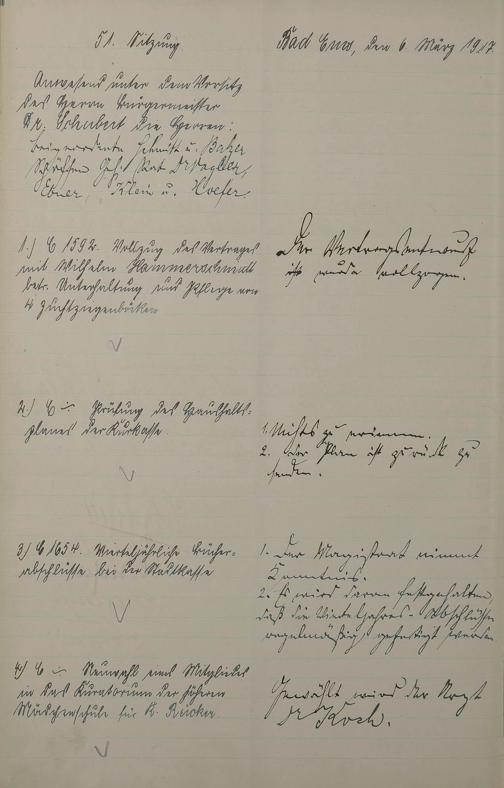 51. Sitzung.
Bad Ems, den 6. März 1917.
Anwesend unter dem Vorsitz
des Herrn Bürgermeister
Dr. Schubert die Herren:
Beigeordnete Schmitt u. Balzer
Schöffen Geh. Rat Dr Vogler,
Ebner, Klein u. Hoefer.
1.) C 1592. Vollzug des Vertrages
mit Wilhelm Hammerschmidt
betr. Unterhaltung und Pflege von
4 Zuchtziegenböcken
Der Vertragsentwurf
ist wurde vollzogen.
2.) C Prüfung des Haushalts-
planes der Kurkasse
1. Nichts zu erinnern.
2. Der Plan ist zurück zu
senden.
3) C 1654. Vierteljährliche Bücher-
abschlüsse bei der Stadtkasse
1. Der Magistrat nimmt
Kenntnis.
2. Es wird daran festgehalten,
daß die Vierteljahres-Abschlüsse
regelmäßig gefertigt werden
4) C Neuwahl eines Mitgliedes
in das Kuratorium der höheren
Mädchenschule für K. Rücker
Gewählt wird der Arzt
Dr Koch.